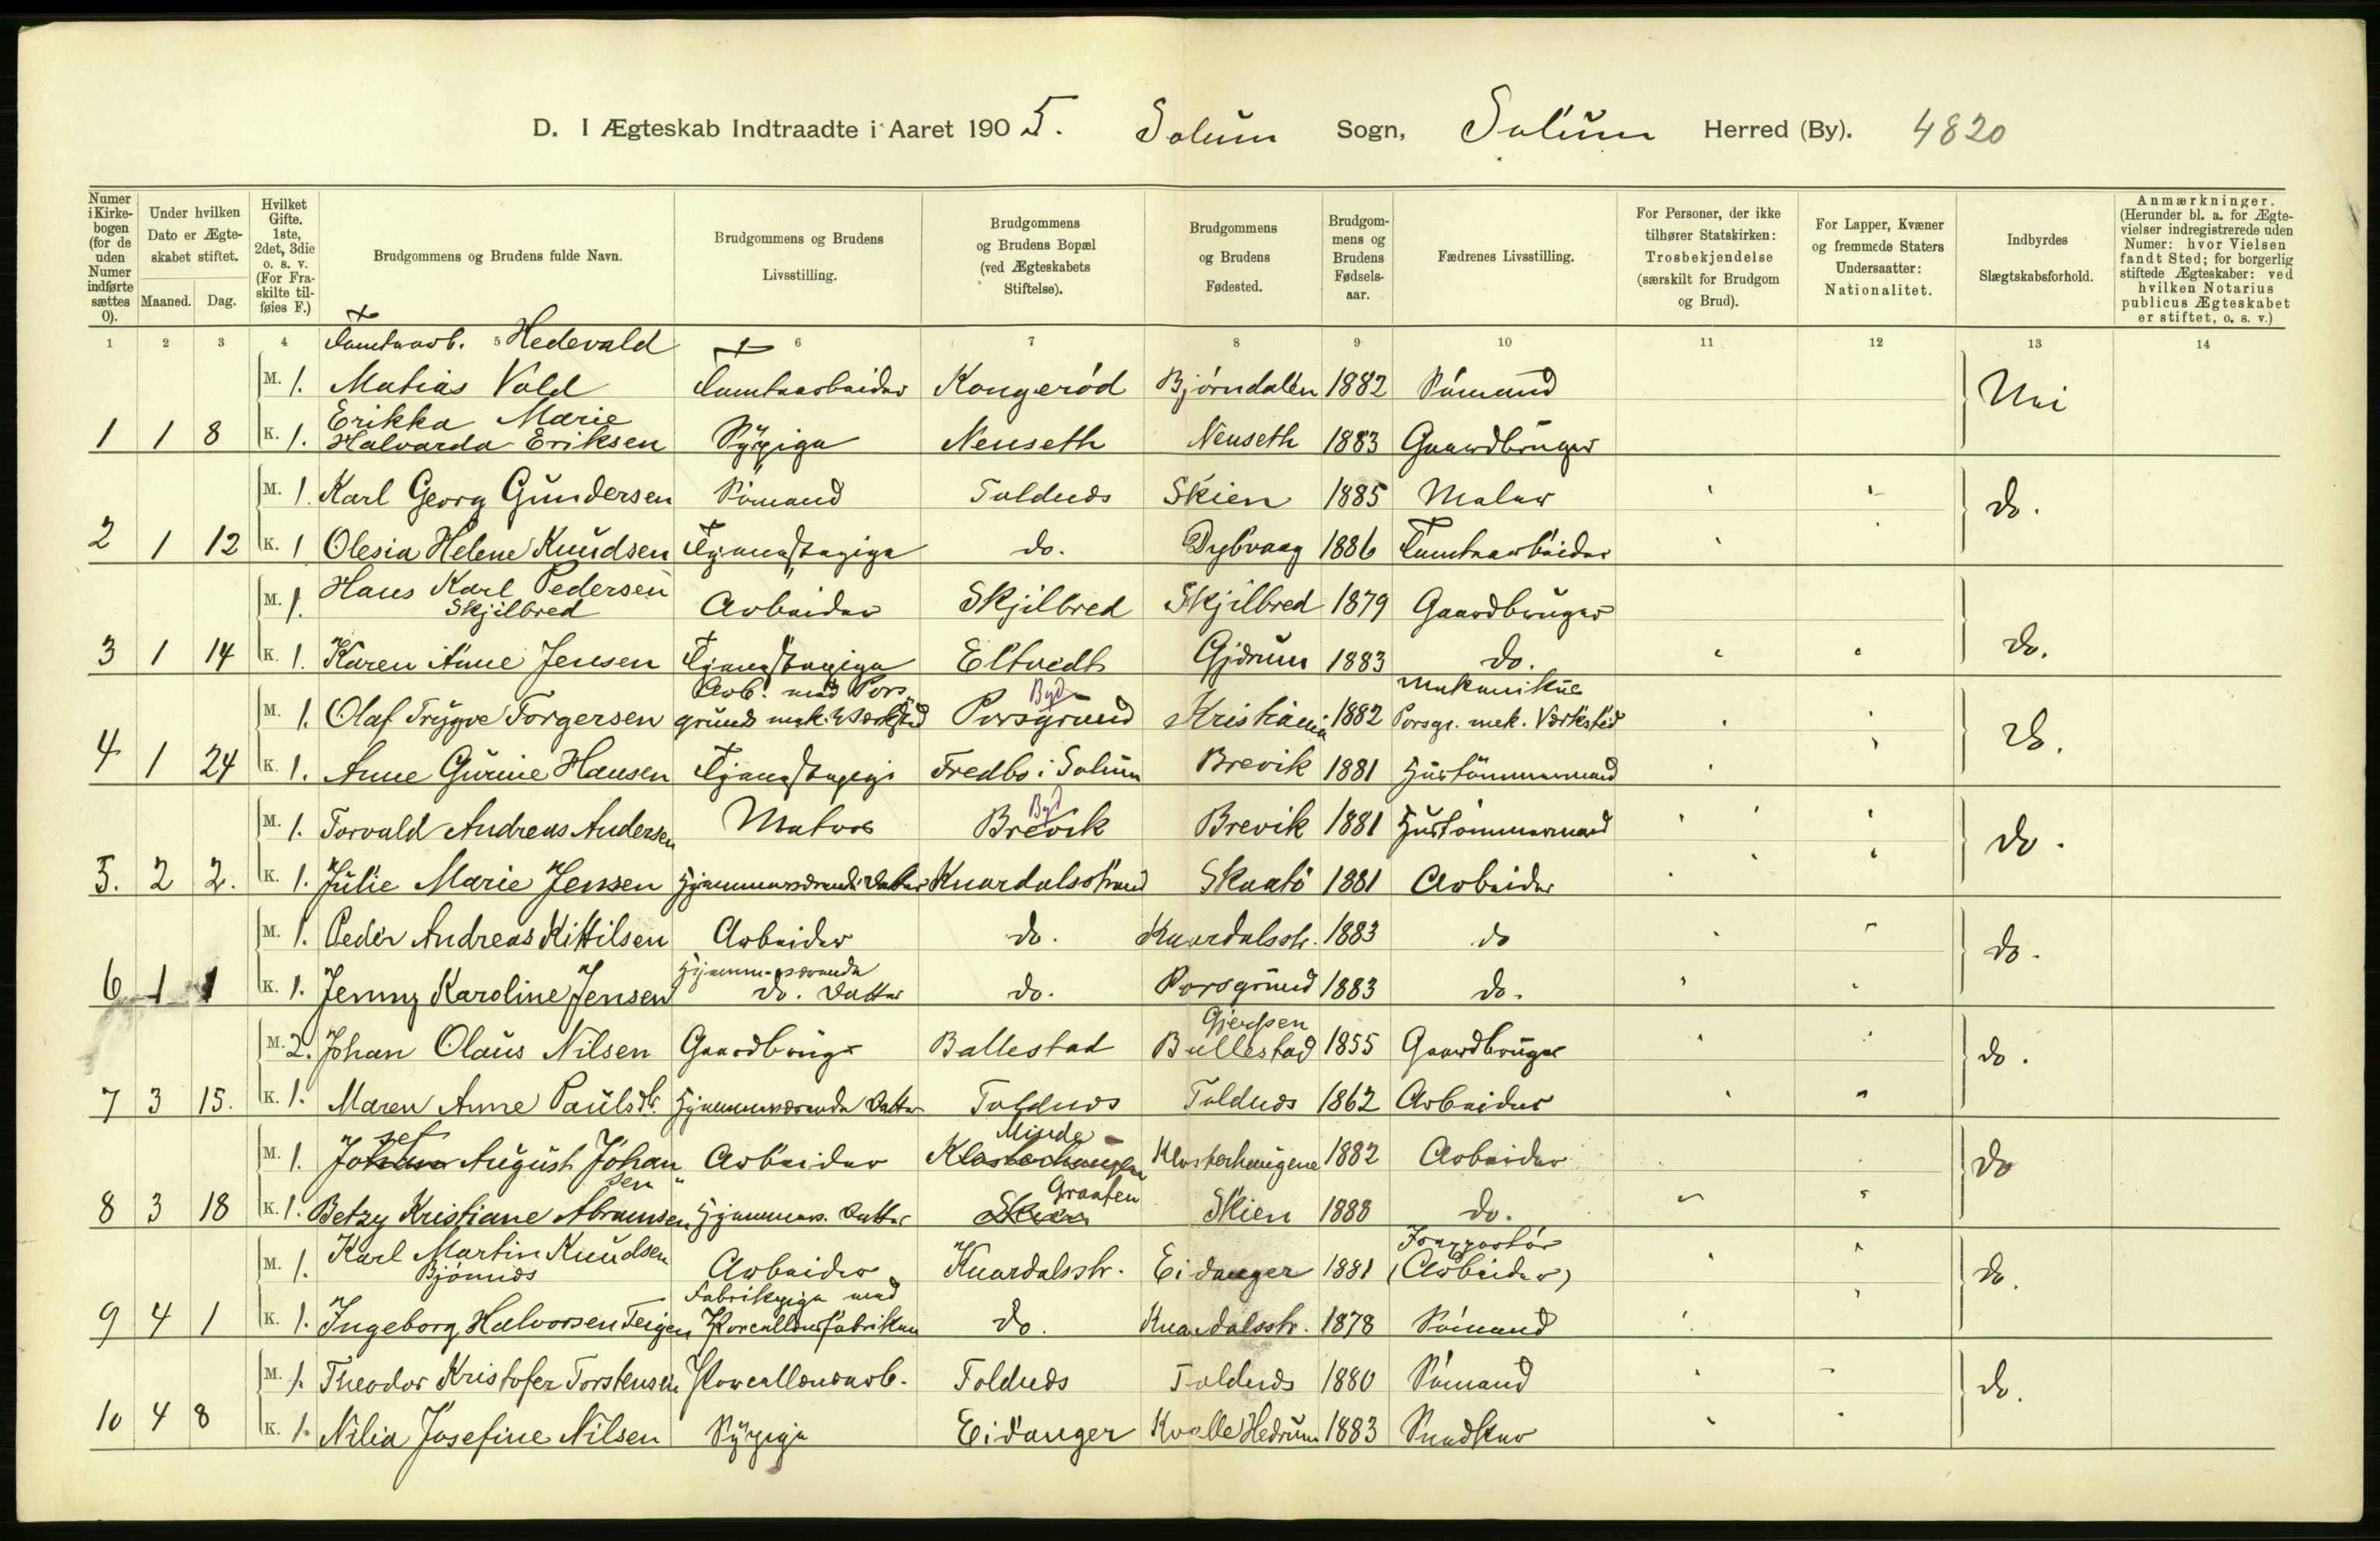 D. I Ægteskab Indtraadte i Aaret 1905. Solum Sogn, Solum Herred (By). 4820
Numer i Kirkebogen (for de uden Numer indførte sættes 0).
Under hvilken Dato er Ægteskabet stiftet.
Maaned. Dag.
Hvilket Gifte. 1ste, 2det, 3die o. s. v. (For Fraskilte tilføies F.)
Brudgommens og Brudens fulde Navn.
Brudgommens og Brudens Livsstilling.
Brudgommens og Brudens Bopæl (ved Ægteskabets Stiftelse).
Brudgommens og Brudens Fødested.
Brudgommens og Brudens Fødselsaar.
Fædrenes Livsstilling.
For Personer, der ikke tilhører Statskirken: Trosbekjendelse (særskilt for Brudgom og Brud).
For Lapper, Kvæner og fremmede Staters Undersaatter: Nationalitet.
Indbyrdes Slægtskabsforhold.
Anmærkninger. (Herunder bl. a. for Ægtevielser indregistrerede uden Numer: hvor Vielsen fandt Sted; for borgerlig stiftede Ægteskaber: ved hvilken Notarius publicus Ægteskabet er stiftet, o. s. v.)
1 2 3 4 5 6 7 8 9 10 11 12 13 14
Tomtearb. Hedevald
M. 1. Matias Vold Tomtearbeider Kongerød Bjørndalen 1882 Sømand Nei
Erikka Marie
1 1 8 K. 1. Halvarda Eriksen Sypige Nenseth Nenseth 1883 Gaardbruger
M. 1. Karl Georg Gundersen Sømand Toldnæs Skien 1885 Maler do.
2 1 12 K. 1 Olesia Helene Knudsen Tjenestepige do. Dybvaag 1886 Tomtearbeider
M. 1. Hans Karl Pedersen
Skjilbred Arbeider Skjilbred Skjilbred 1879 Gaardbruger do.
3 1 14 K. 1. Karen Anne Jensen Tjenestepige Eltvedt Gjerum 1883 do.
Arb. ved Pors By Mekanikus
M. 1. Olaf Trygve Torgersen grunds mek. Værksted Porsgrund Kristiania 1882 Porsgr. mek. Værksted do.
4 1 24 K. 1. Anne Gurine Hansen Tjenestepige Fredbo i Solum Brevik 1881 Hustømmermand
By
M. 1. Torvald Andreas Andersen Matros Brevik Brevik 1881 Hustømmermand do.
5. 2 2. K. 1. Julie Marie Jensen Hjemmeværende Datter Knardalsstrand Skaatø 1881 Arbeider
M. 1. Peder Andreas Kittilsen Arbeider do. Knardalsstr. 1883 do do.
Hjemmeværende
6 1 1 K. 1. Jenny Karoline Jensen do. Datter do. Porsgrund 1883 do.
Gjerpen
M. 2. Johan Olaus Nilsen Gaardbruger Ballestad Ballestad 1855 Gaardbruger do.
7 3 15. K. 1. Maren Anne Paulsdtr. Hjemmeværende Datter Toldnæs Toldnæs 1862 Arbeider
sef Minde
M. 1. Johan August Johansen Arbeider Klosterhaugen Klosterhaugene 1882 Arbeider do
Graaten
8 3 18 K. 1. Betzy Kristiane Abramsen Hjemmev. Datter Skien Skien 1888 do.
Karl Martin Knudsen
M. 1. Bjørnnæs Arbeider Knardalsstr. Eidanger 1881 (Arbeider) do.
Fabrikpige ved
9 4 1 K. 1. Ingeborg Halvorsen Teigen Porcellænsfabriken do. Knardalsstr. 1878 Sømand
M. 1. Theodor Kristofer Torstensen Porcellænsarb. Toldnæs Toldnæs 1880 Sømand do.
10 4 8 K. 1. Nilia Josefine Nilsen Sypige Eidanger Kvelle Hedrum 1883 Snedker